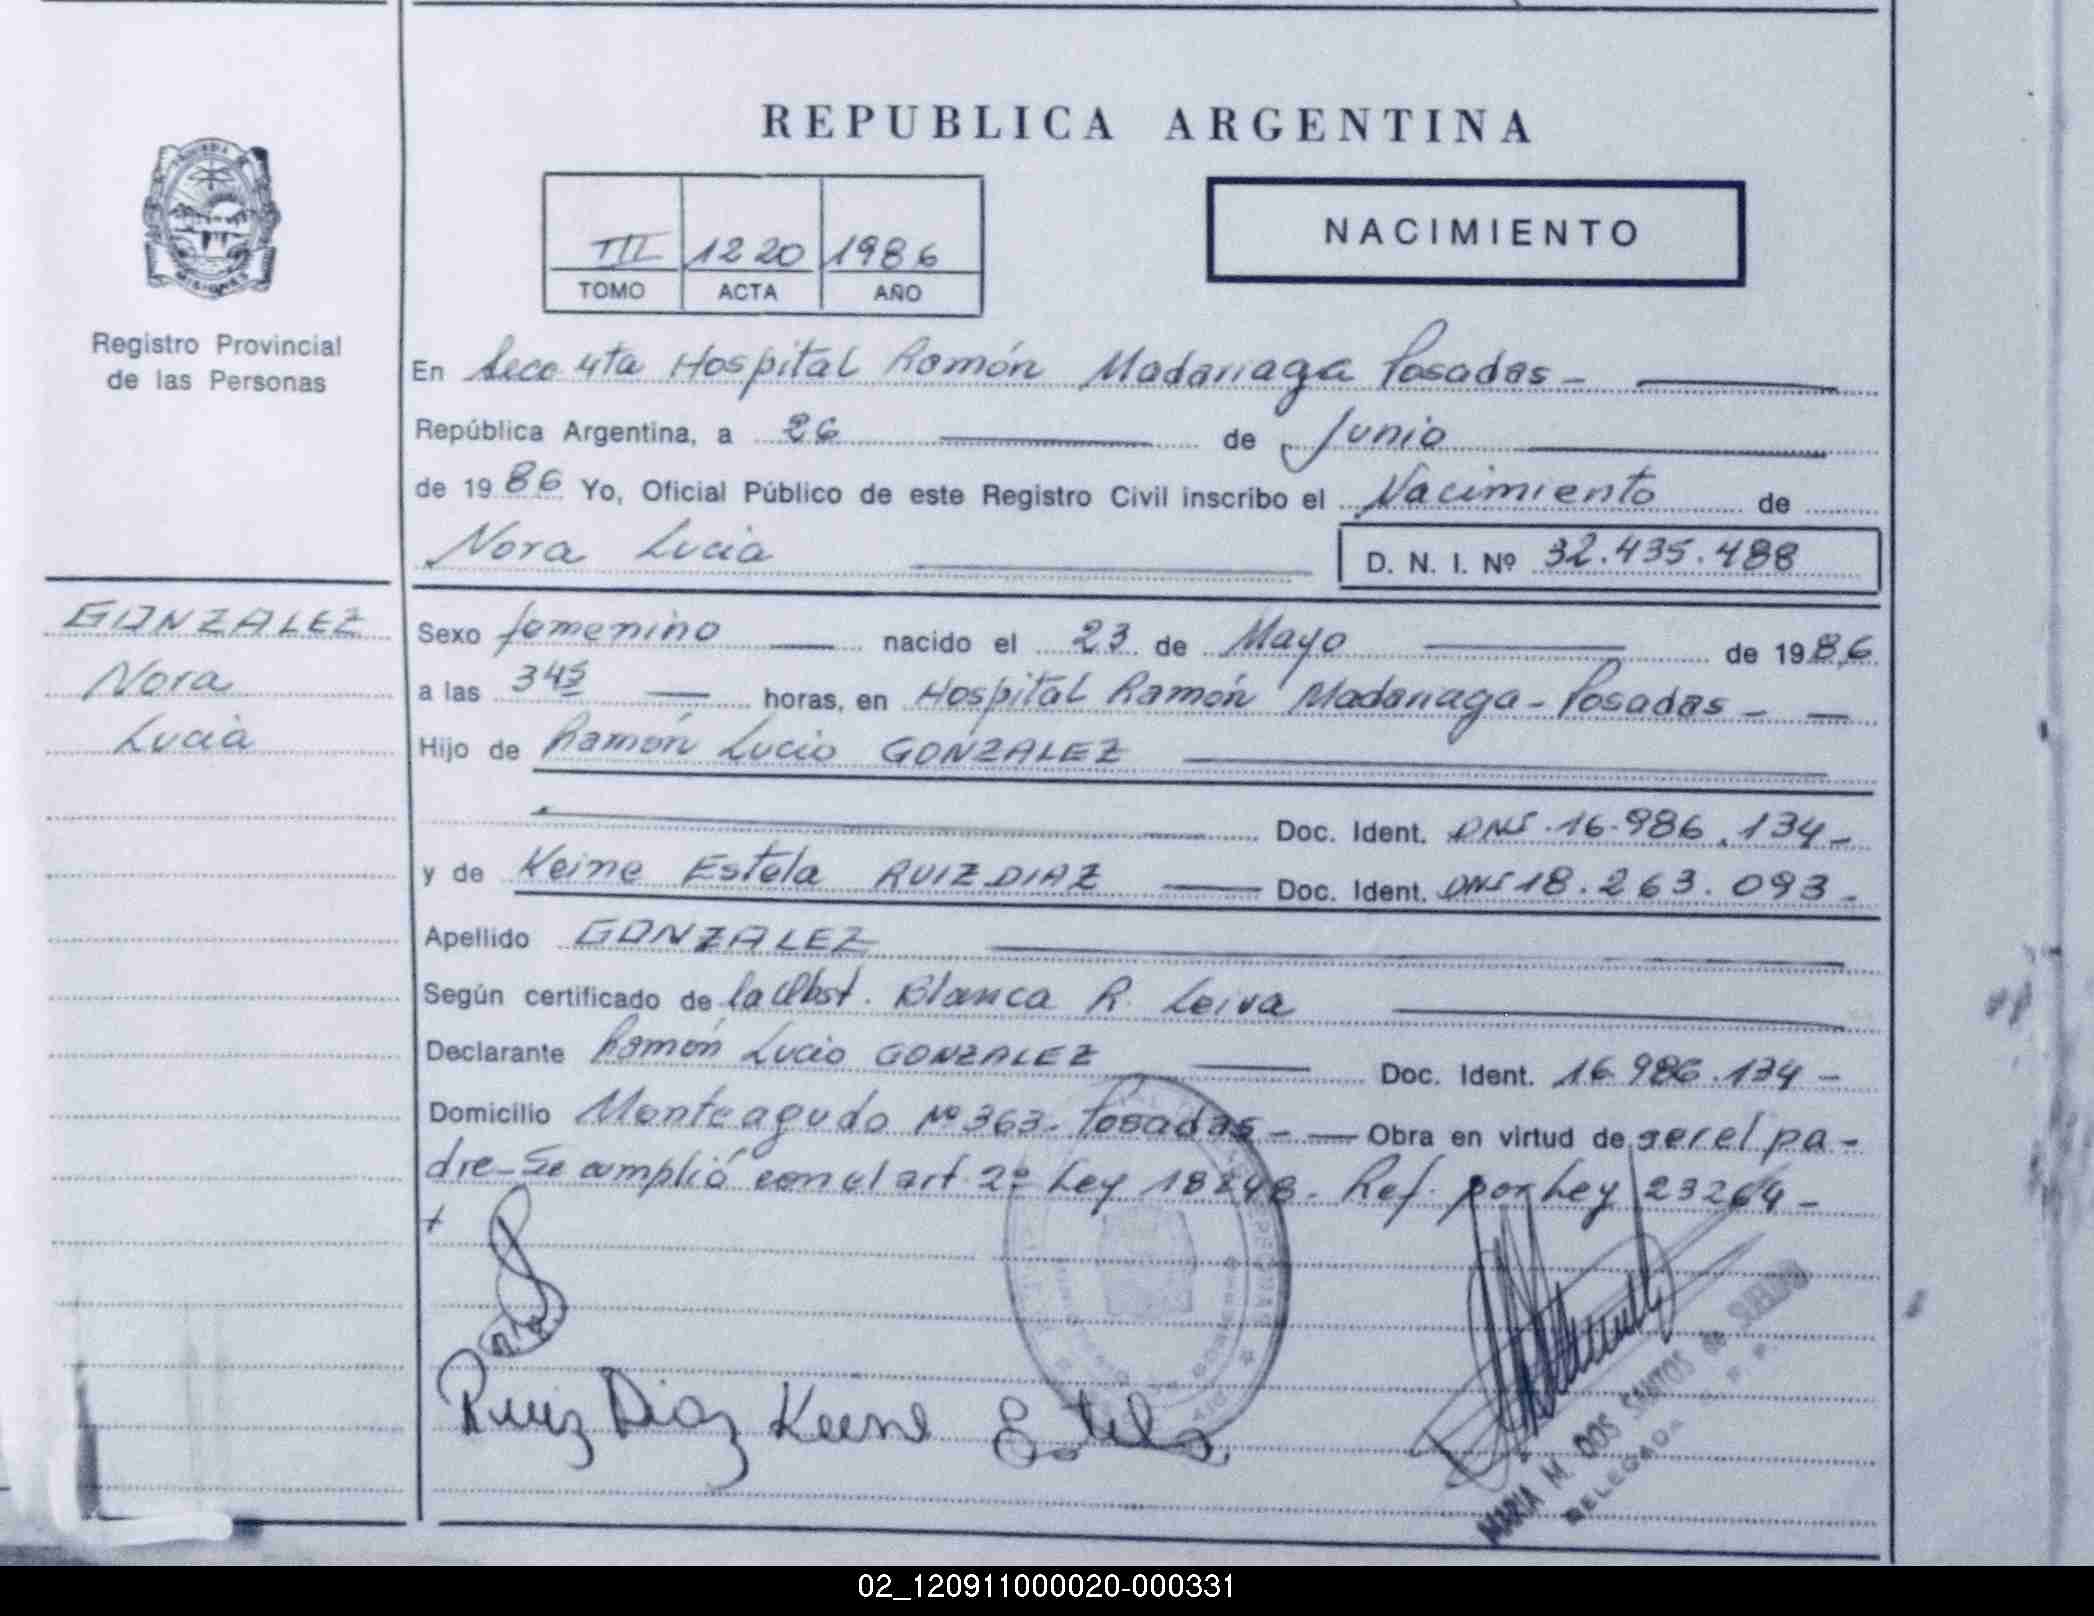 REPUBLICA ARGENTINA
NACIMIENTO
III 1220 1986
TOMO ACTA AÑO
Registro Provincial
de las Personas
En Secc 4ta Hospital Ramón Madariaga Posadas -
República Argentina, a 26 de Junio
de 1986 Yo, Oficial Público de este Registro Civil inscribo el Nacimiento de
Nora Lucia D. N. I. Nº 32.435.488
GONZALEZ
Nora
Lucia
Sexo femenino nacido el 23 de Mayo de 1986
a las 345 horas, en Hospital Ramón Madariaga - Posadas -
Hijo de Ramón Lucio GONZALEZ
Doc. Ident. DNI. 16.986.134 -
y de Keine Estela RUIZ DIAZ Doc. Ident. DNI 18.263.093 -
Apellido GONZALEZ
Según certificado de la Obst. Blanca R. Leiva
Declarante Ramón Lucio GONZALEZ Doc. Ident. 16.986.134 -
Domicilio Monteagudo Nº 363 - Posadas - Obra en virtud de ser el pa-
dre - Se cumplió con el art. 2º Ley 18248 - Ref. por Ley 23264 -
Ruiz Diaz Keine Estela
MARIA M. DOS SANTOS de
DELEGADA R. P. P.
02_120911000020-000331